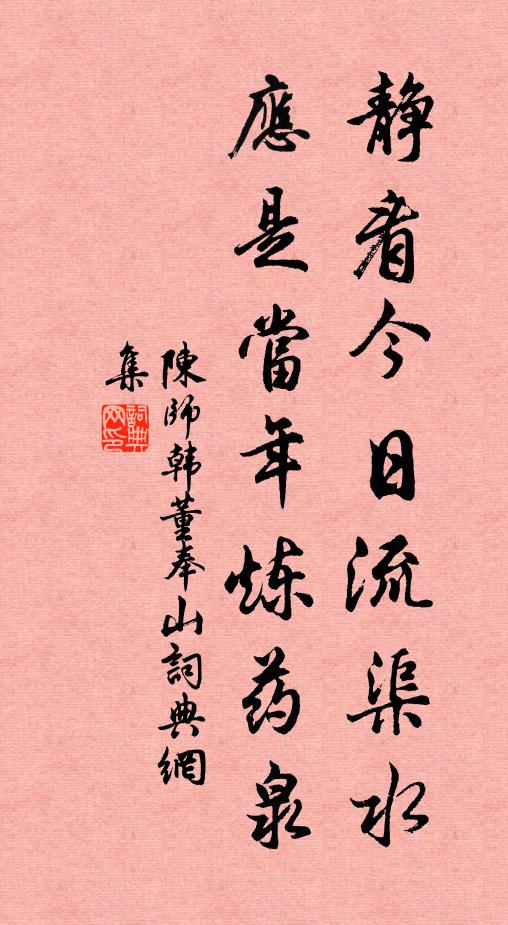 静看今日流渠水
應是當年炼药泉
陳師韩董奉山詞典網
集
詞典网印